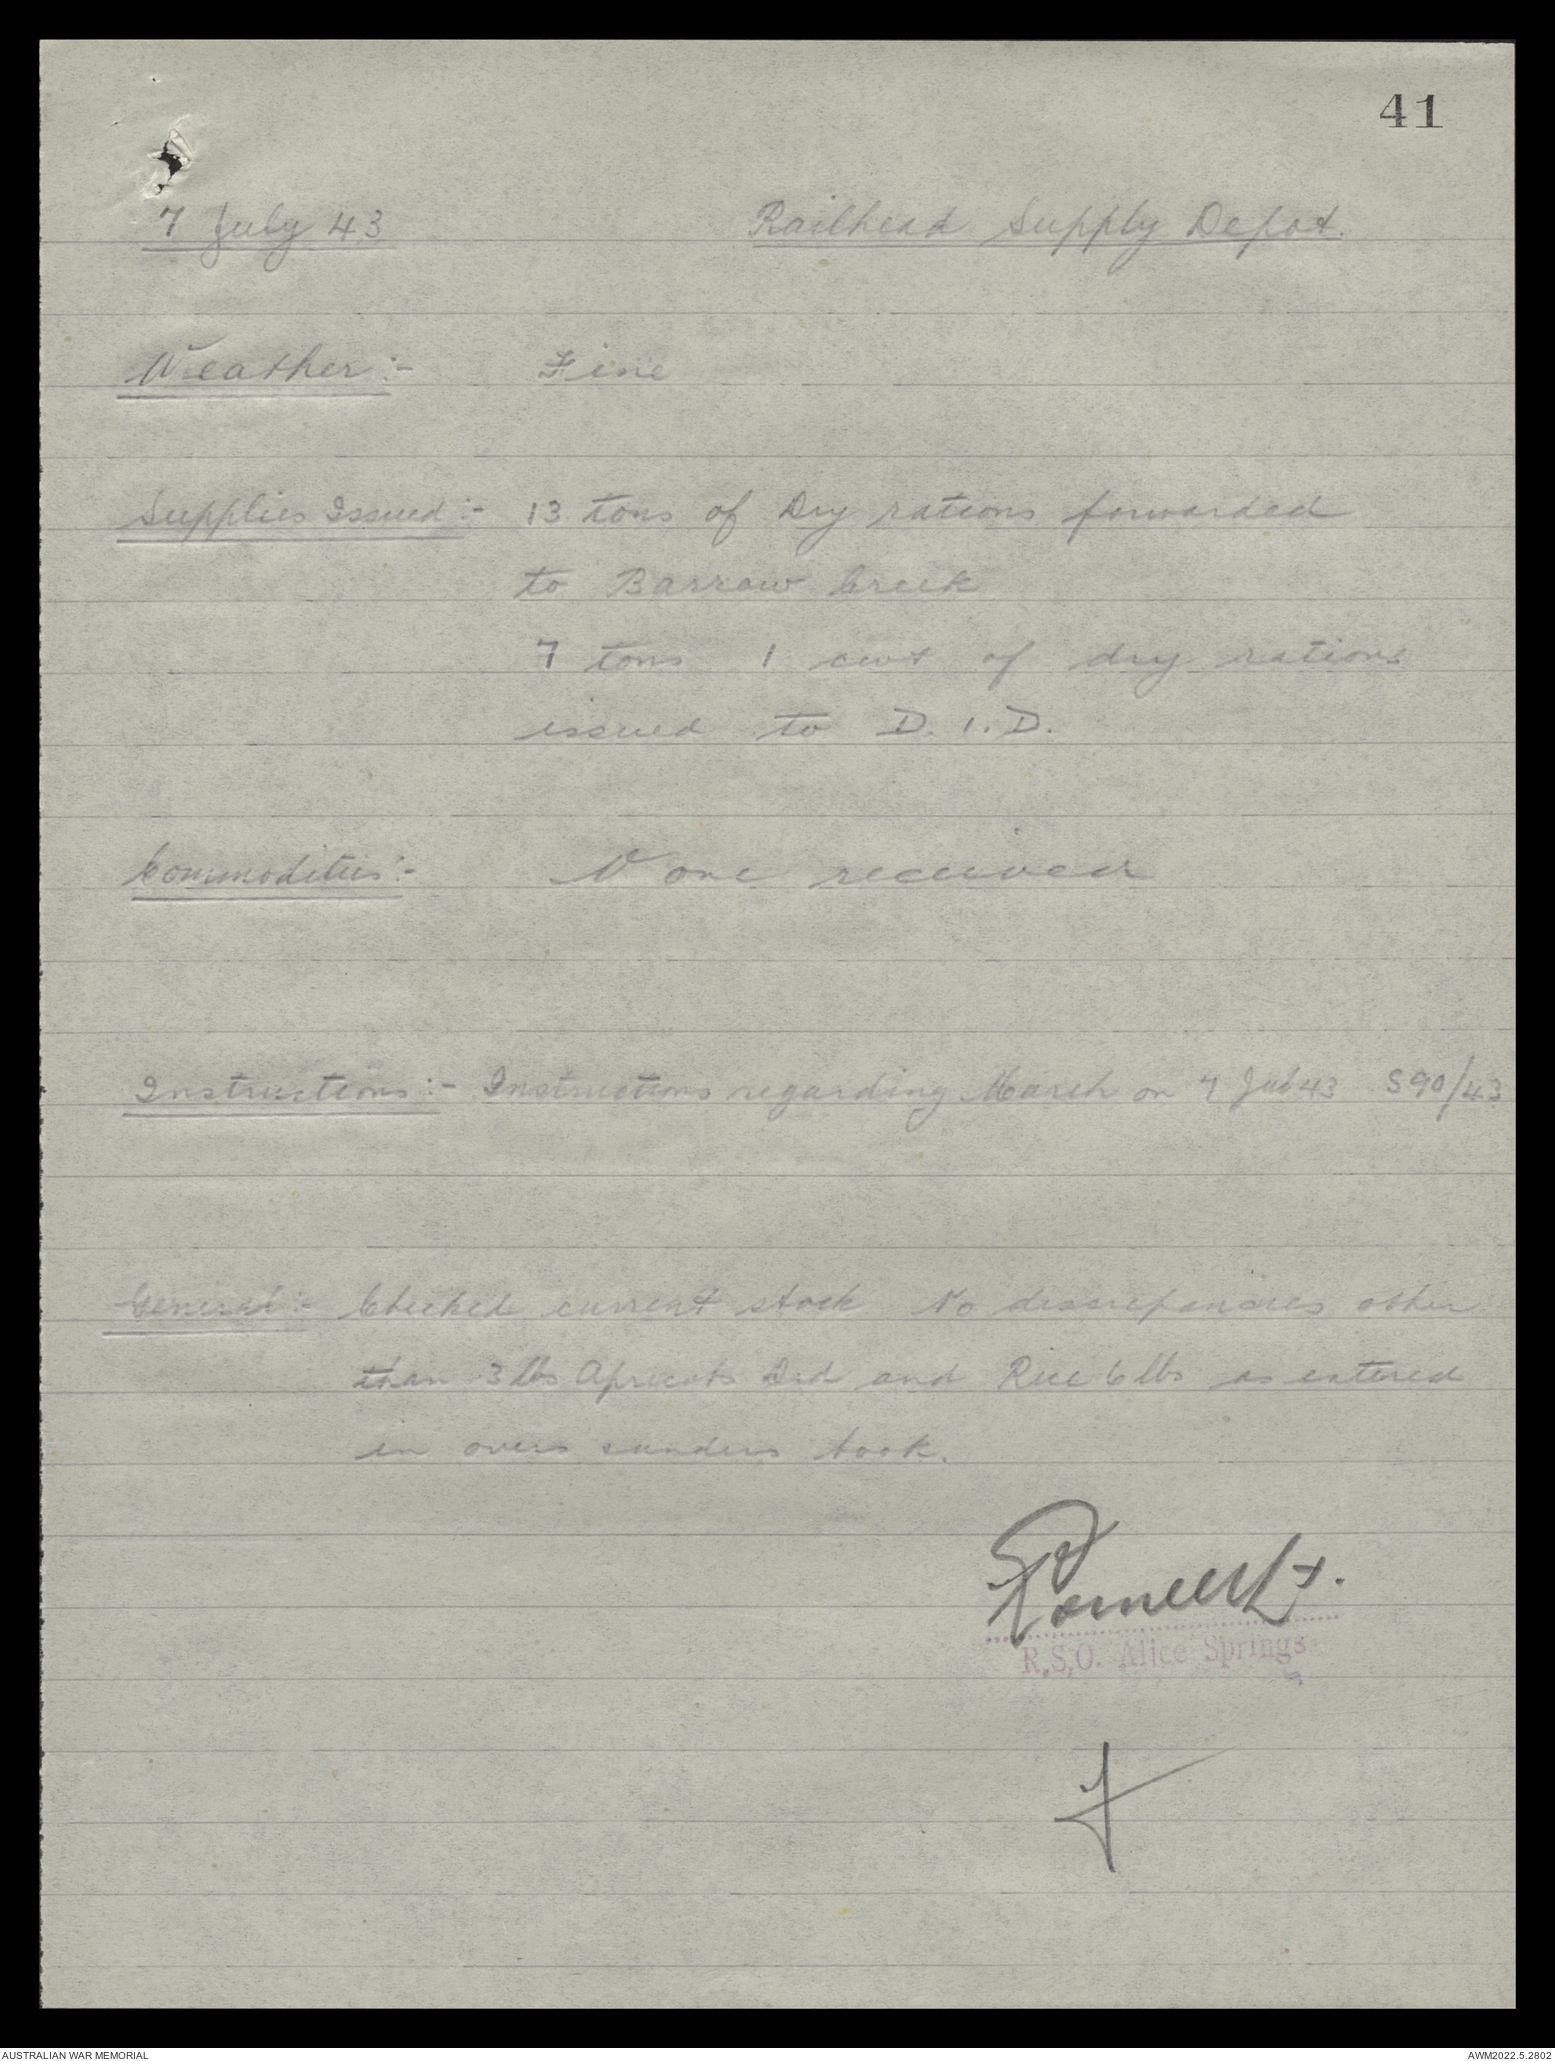 41
7 July 43 Railhead Supply Depot.
Weather:- Fine
Supplies Issued:- 13 tons of Dry rations forwarded
to Barrow Creek
7 tons 1 cwt of dry rations
issued to D.I.D.
Commodities:- None received
Instructions:- Instructions regarding March on 7 Jul 43 S90/43
General:- Checked current stock No discrepancies other
than 3 lbs Apricots Drd and Rice 6 lbs as entered
in overs sunders book.
R.S.O. Alice Springs
AUSTRALIAN WAR MEMORIAL AWM2022.5.2802